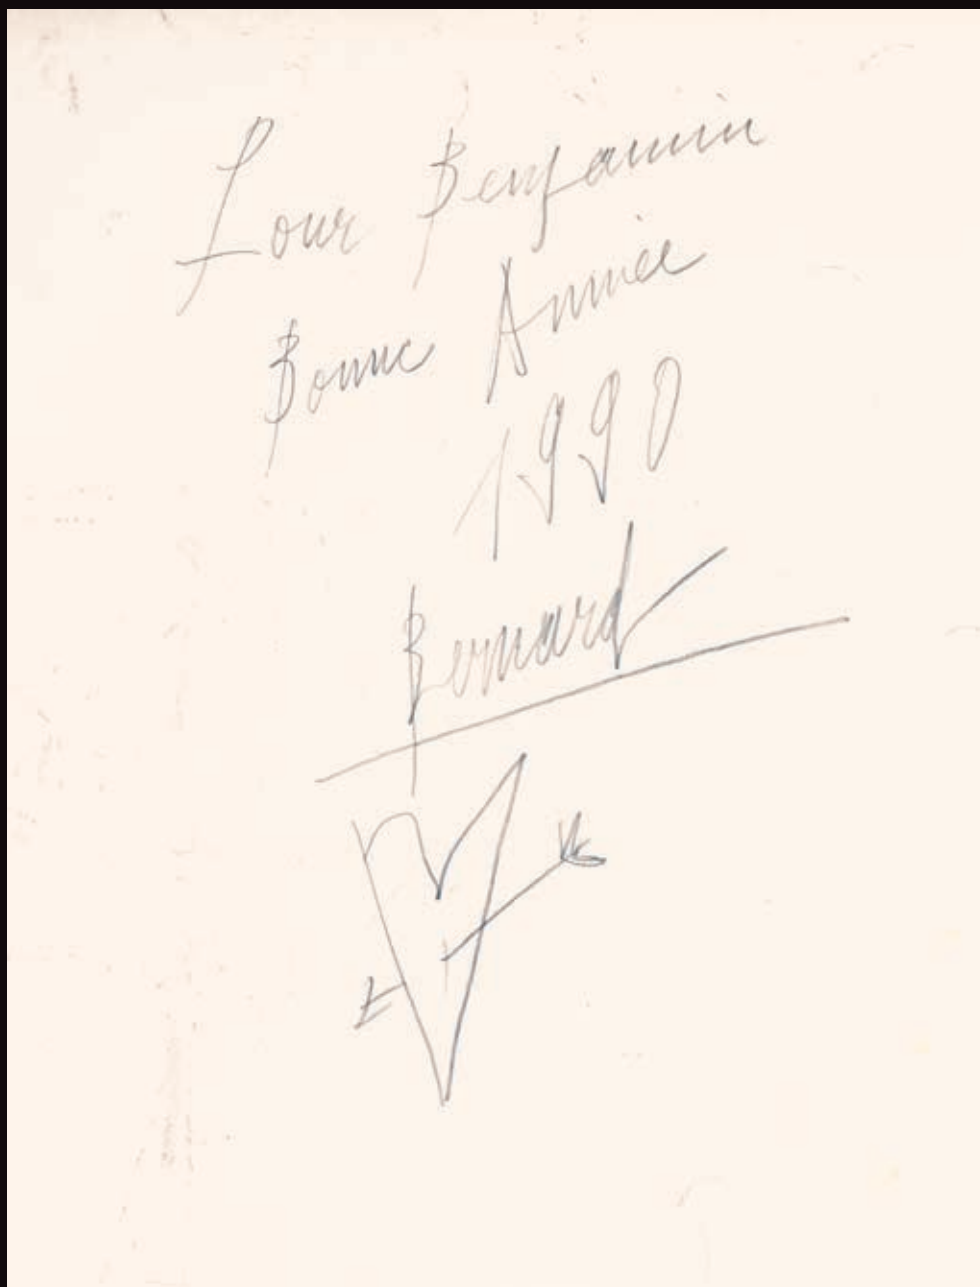 Pour Benjamin
Bonne Année
1990
Bernard